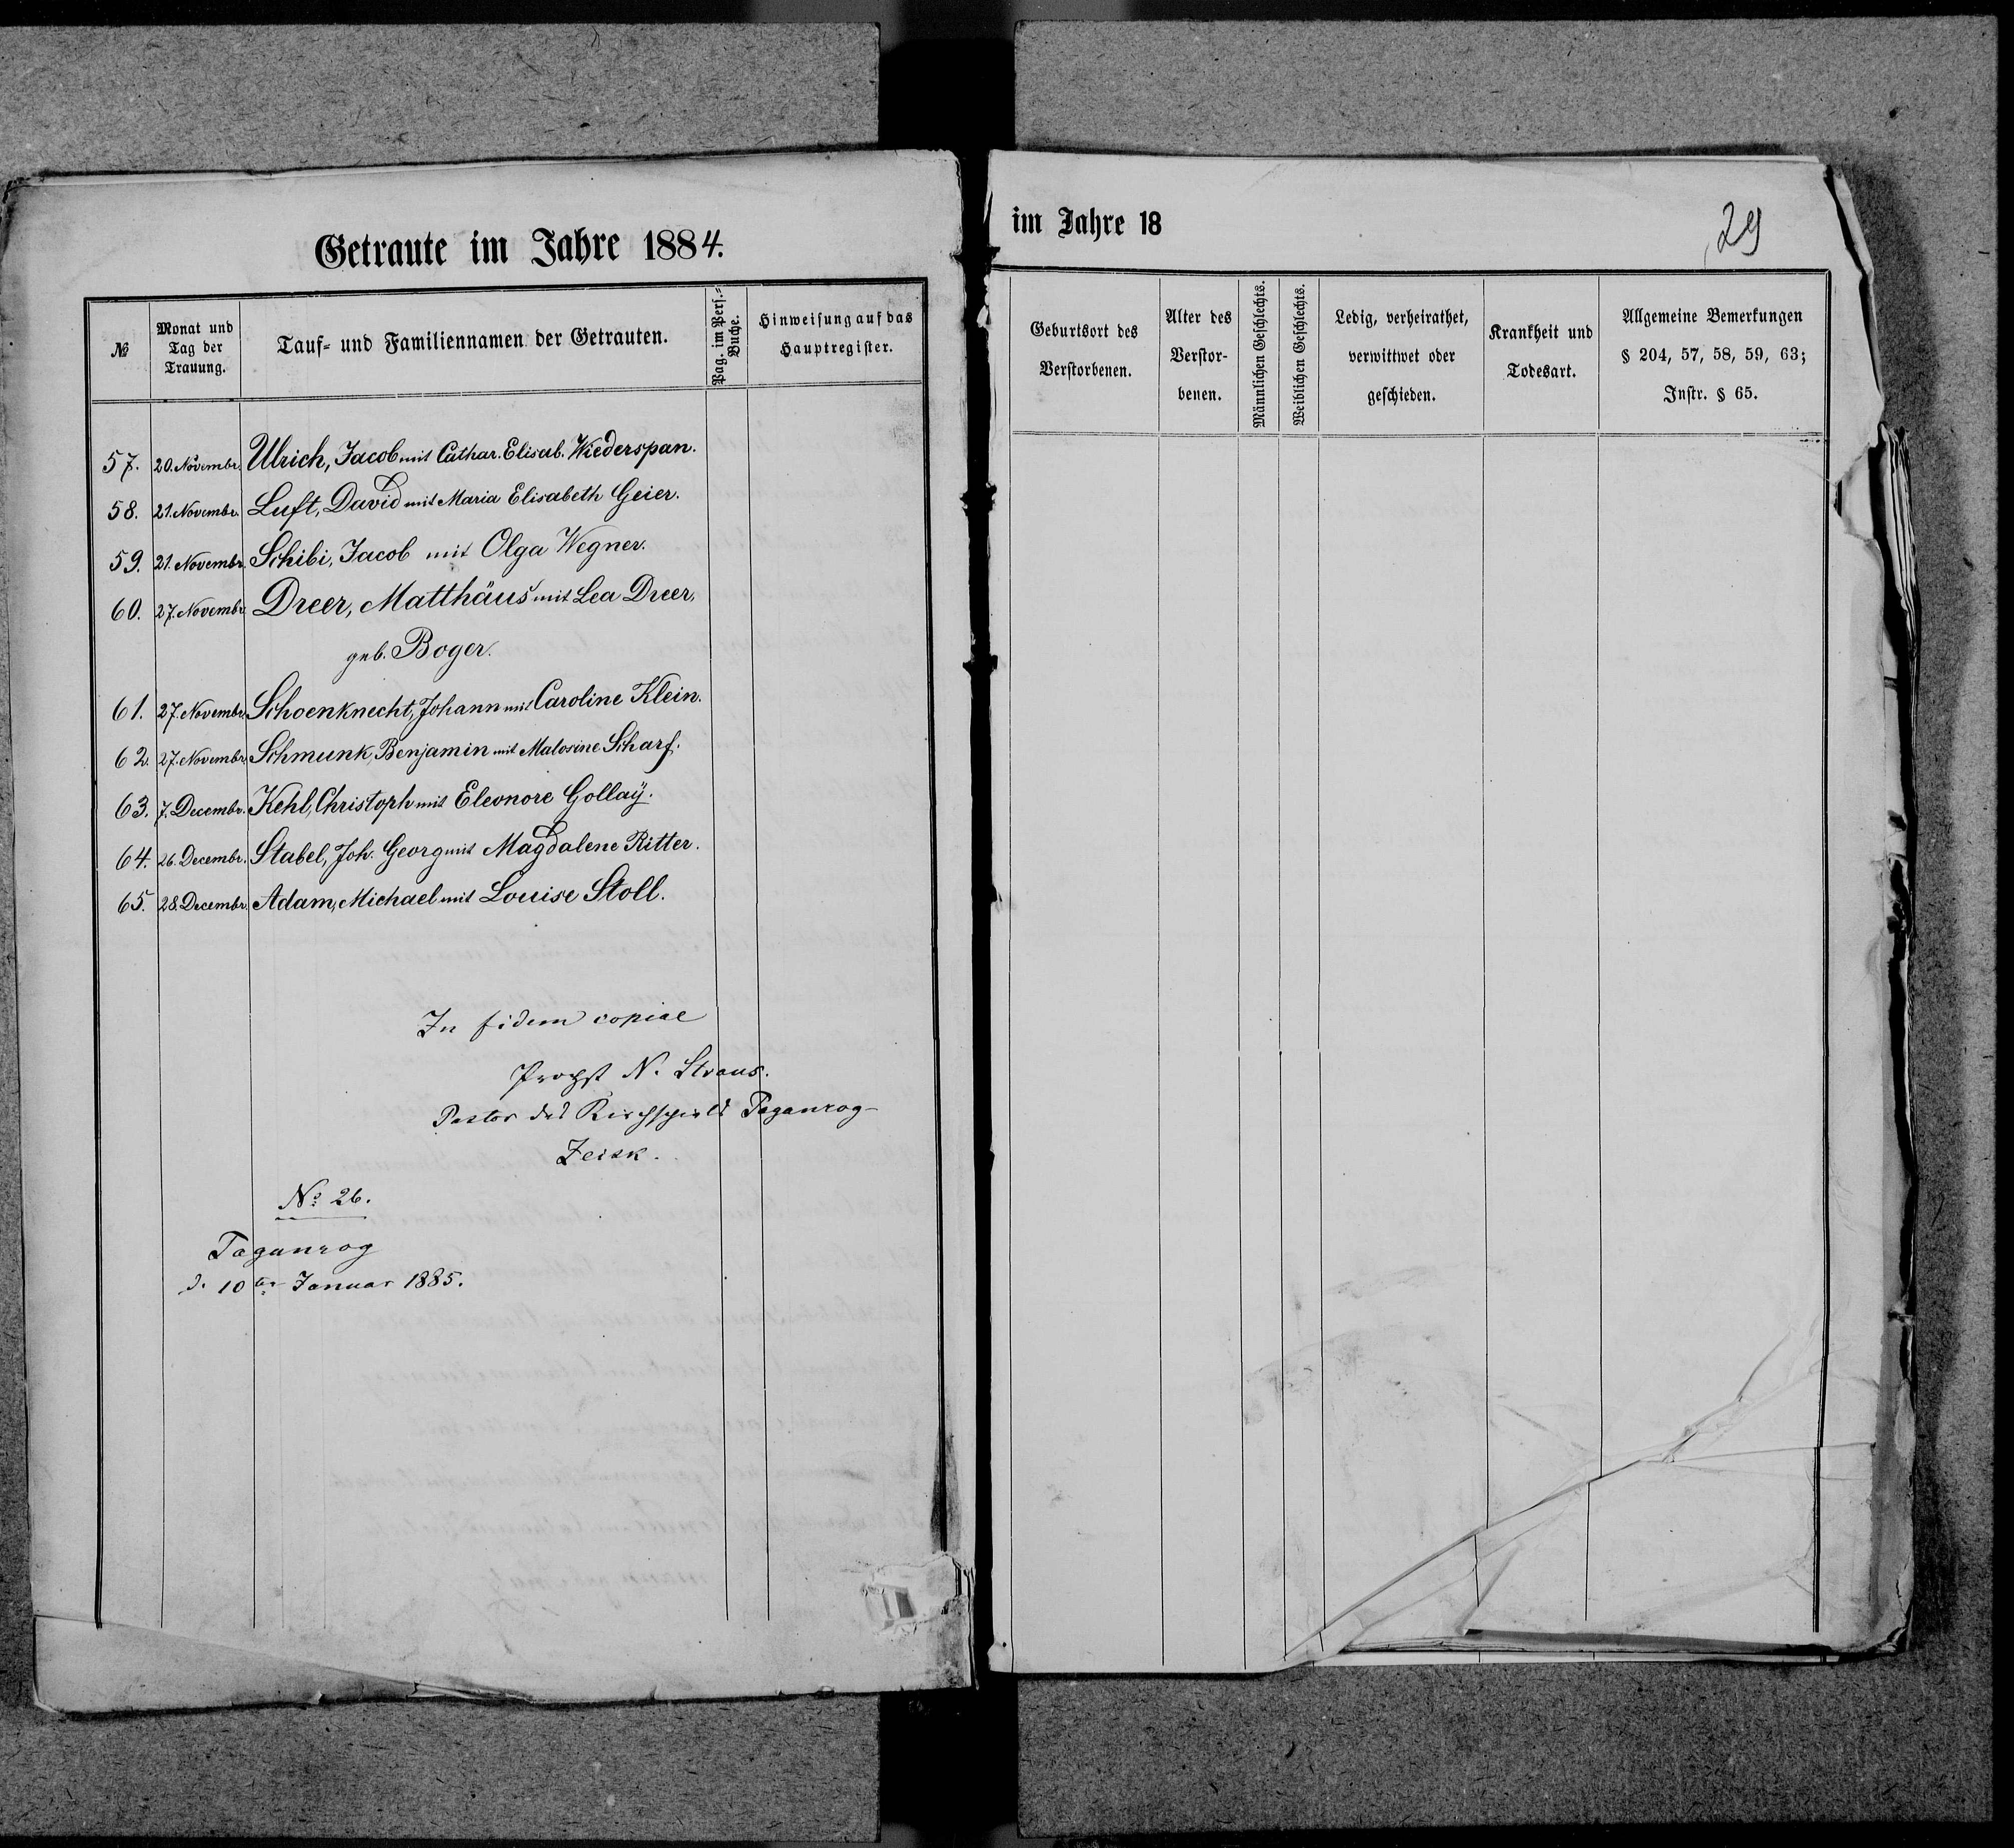 Getraute im Jahre 1884.
№ Monat und Tag der Trauung. Tauf- und Familiennamen der Getrauten. Pag. im Pers.-Buche. Hinweisung auf das Hauptregister.
57. 20. Novembr. Ulrich, Jacob mit Cathar. Elisab. Wiederspan.
58. 21. Novembr. Luft, David mit Maria Elisabeth Geier.
59. 21. Novembr. Schibi, Jacob mit Olga Wegner.
60. 27. Novembr. Dreer, Matthäus mit Lea Dreer,
geb. Boger.
61. 27. Novembr. Schoenknecht, Johann mit Caroline Klein.
62. 27. Novembr. Schmunk, Benjamin mit Malosine Scharf.
63. 7. Decembr. Kehl, Christoph mit Eleonore Gollaÿ.
64. 26. Decembr. Stabel, Joh. Georg mit Magdalene Ritter.
65. 28. Decembr. Adam, Michael mit Louise Stoll.
In fidem copiae
Propst N. Straus.
Pastor des Kirchspiels Taganrog-
Jeisk.
№ 26.
Taganrog
d. 10ten Januar 1885.
im Jahre 18
29
Geburtsort des Verstorbenen. Alter des Verstorbenen. Männlichen Geschlechts. Weiblichen Geschlechts. Ledig, verheirathet, verwittwet oder geschieden. Krankheit und Todesart. Allgemeine Bemerkungen § 204, 57, 58, 59, 63; Instr. § 65.